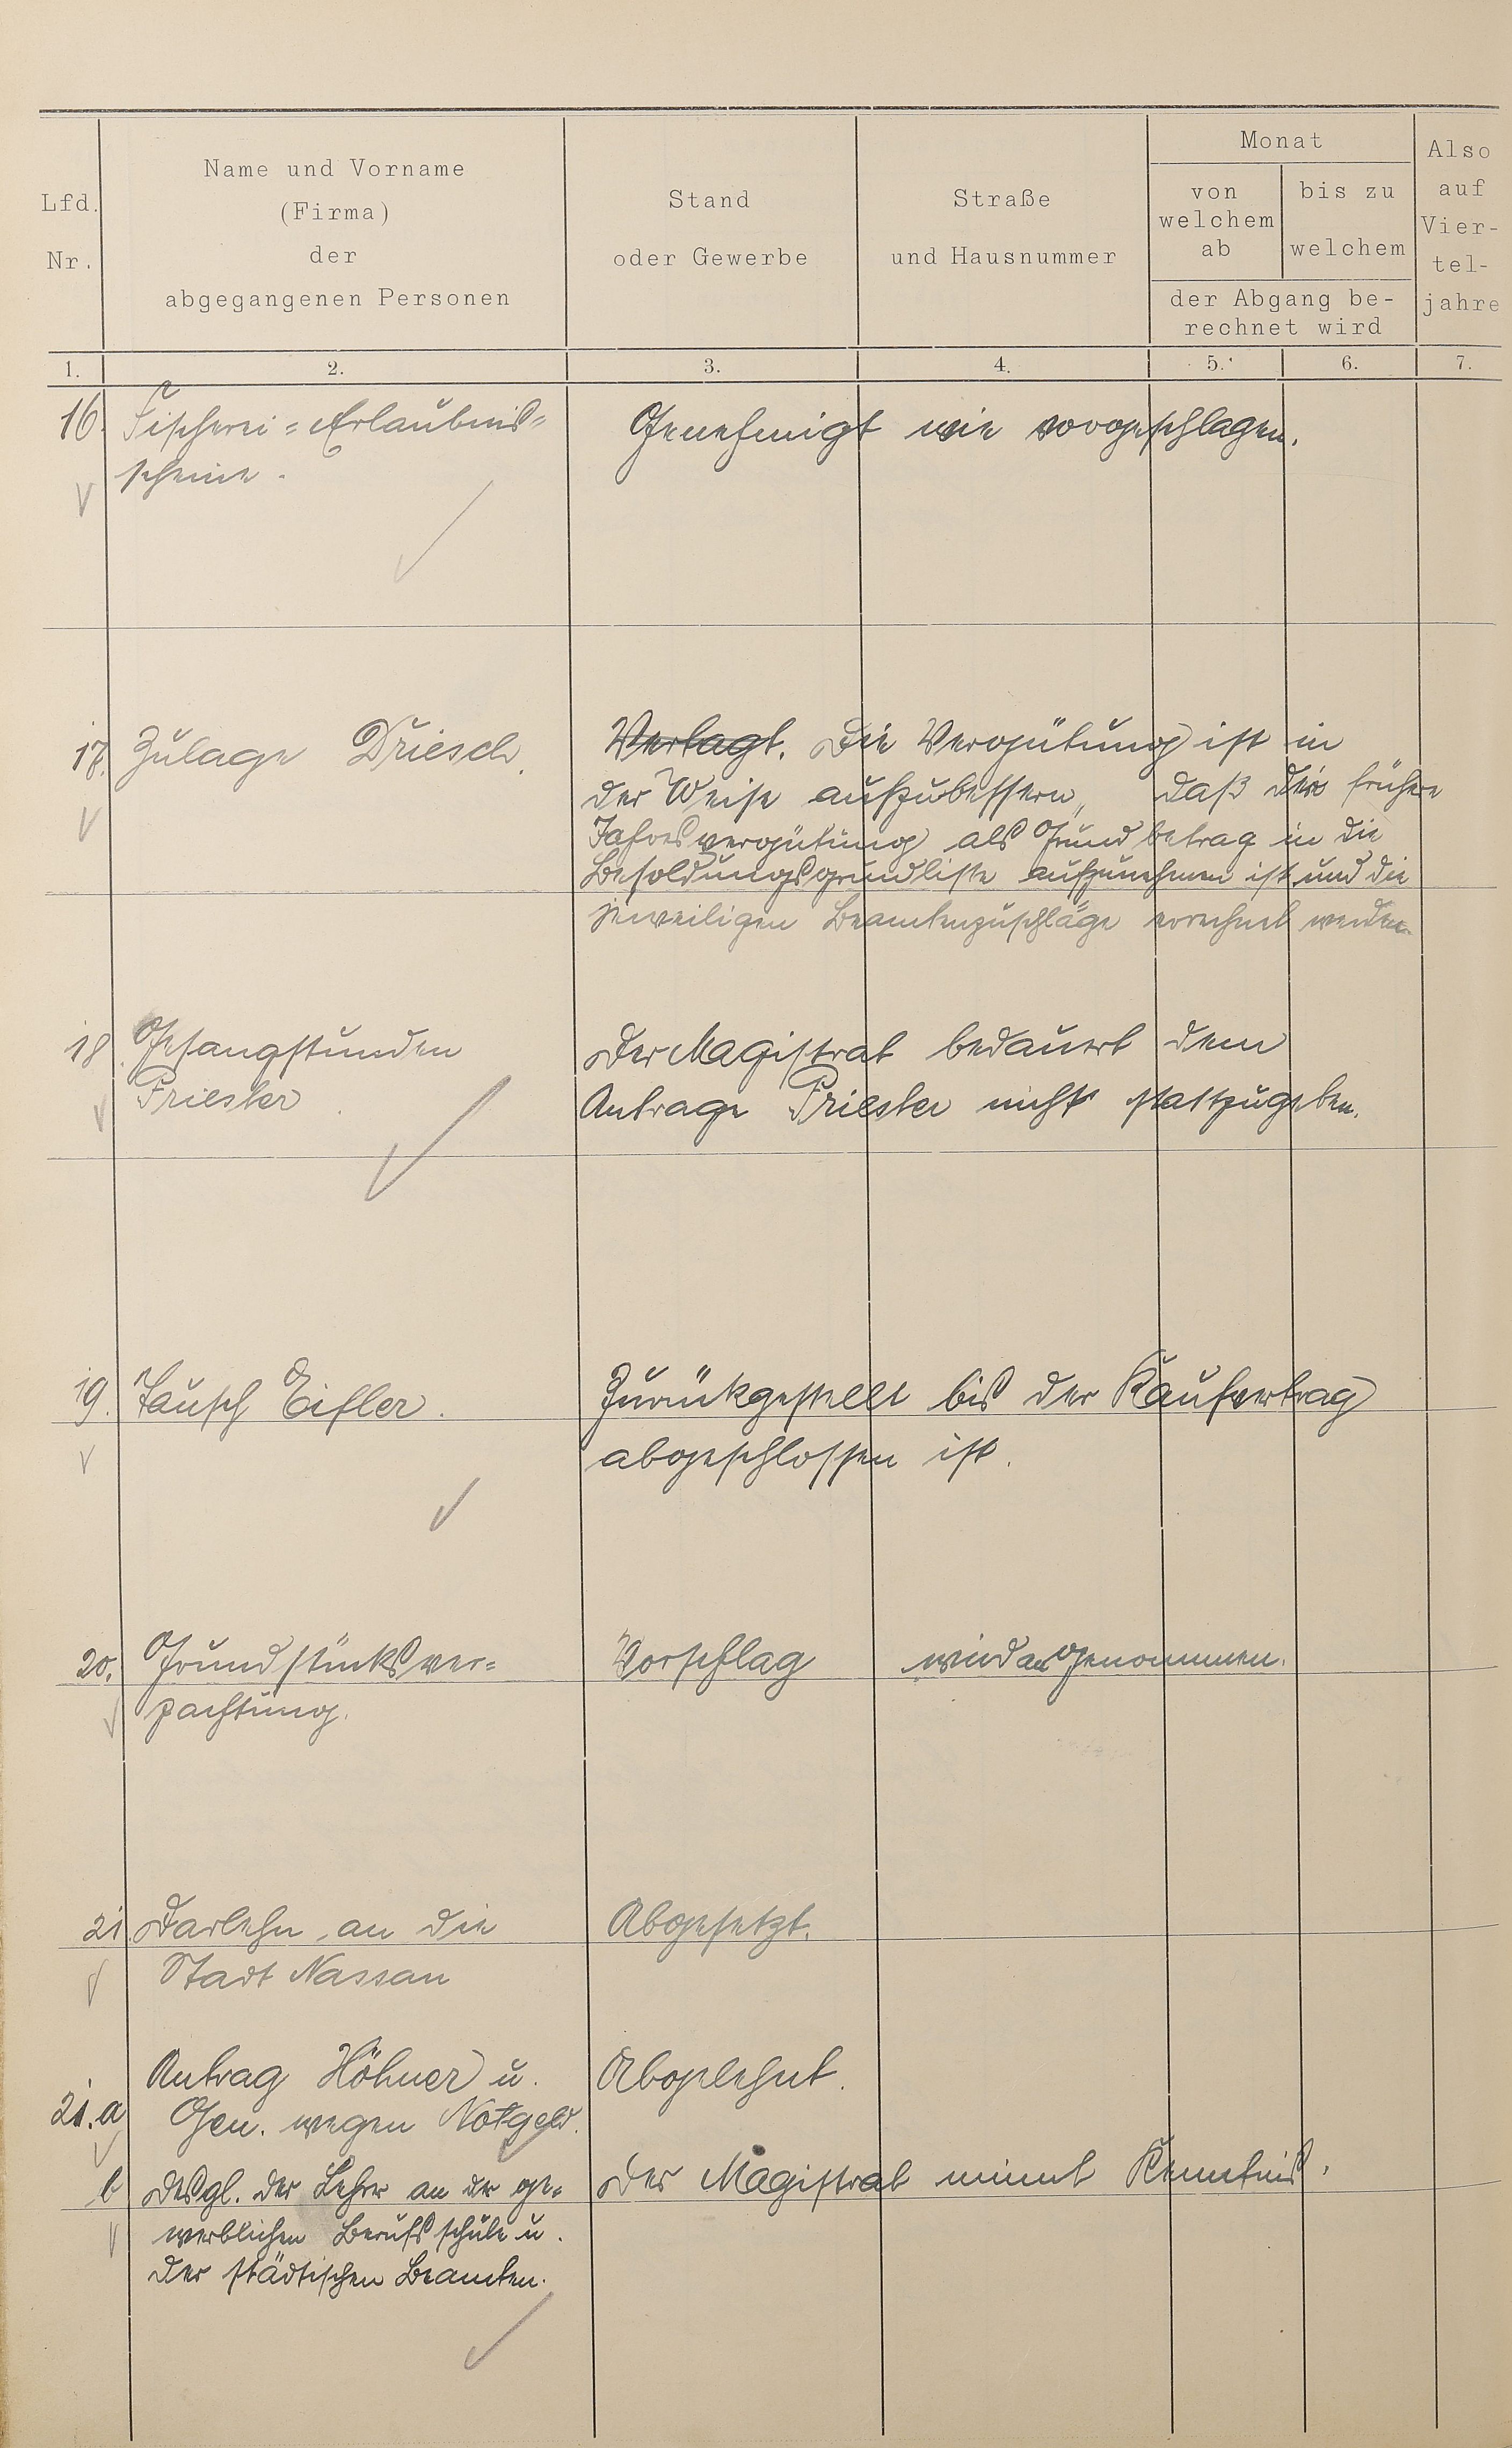 Lfd.
Nr.
Name und Vorname
(Firma)
der
abgegangenen Personen
Stand
oder Gewerbe
Straße
und Hausnummer
Monat
von
welchem
ab
bis zu
welchem
der Abgang be-
rechnet wird
Also
auf
Vier-
tel-
jahre
1. 2. 3. 4. 5. 6. 7.
16. Fischerei=Erlaubnis=
scheine.
Genehmigt wie vorgeschlagen.
17. Zulage Driesch.
Vertagt. Die Vergütung ist in
der Weise aufzubessern, daß die frühere
Jahresvergütung als Grundbetrag in die
Besoldungsgrundliste aufzunehmen ist und die
jeweiligen Beamtenzuschläge errechnet werden
18. Gesangstunden
Priester
Der Magistrat bedauert dem
Antrage Priester nicht stattzugeben.
19. Tausch Eifler.
Zurückgestellt bis der Kaufvertrag
abgeschlossen ist.
20. Grundstücksver=
pachtung.
Vorschlag wird angenommen.
21 Darlehn an die
Stadt Nassau
Abgesetzt.
21.a Antrag Höhner u.
Gen. wegen Notgeld.
Abgelehnt.
b desgl. der Lehrer an der ge=
werblichen Berufsschule u.
der städtischen Beamten.
Der Magistrat nimmt Kenntnis.